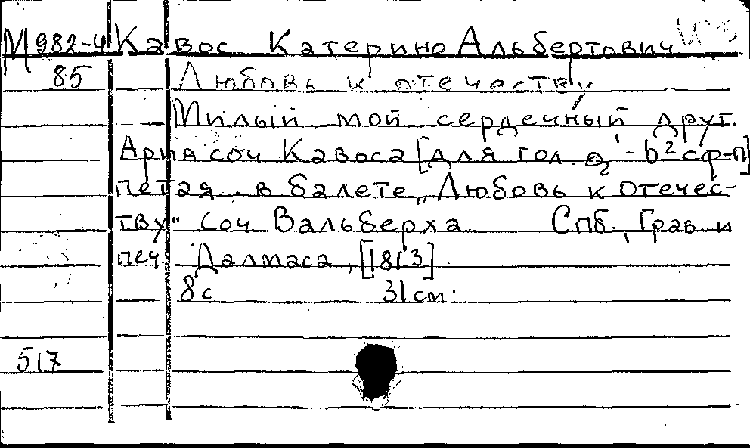 М 982-4 Кавос Катерино Альбертович
85 Любовь к отечеству
Милый мой сердечный друг.
Ария соч Кавоса [для гол. a¹-b² с ф-п]
петая в балете „Любовь к отечес-
тву" соч Вальберха Спб, Грав и
печ Далмаса, [1813]
8с 31см.
517